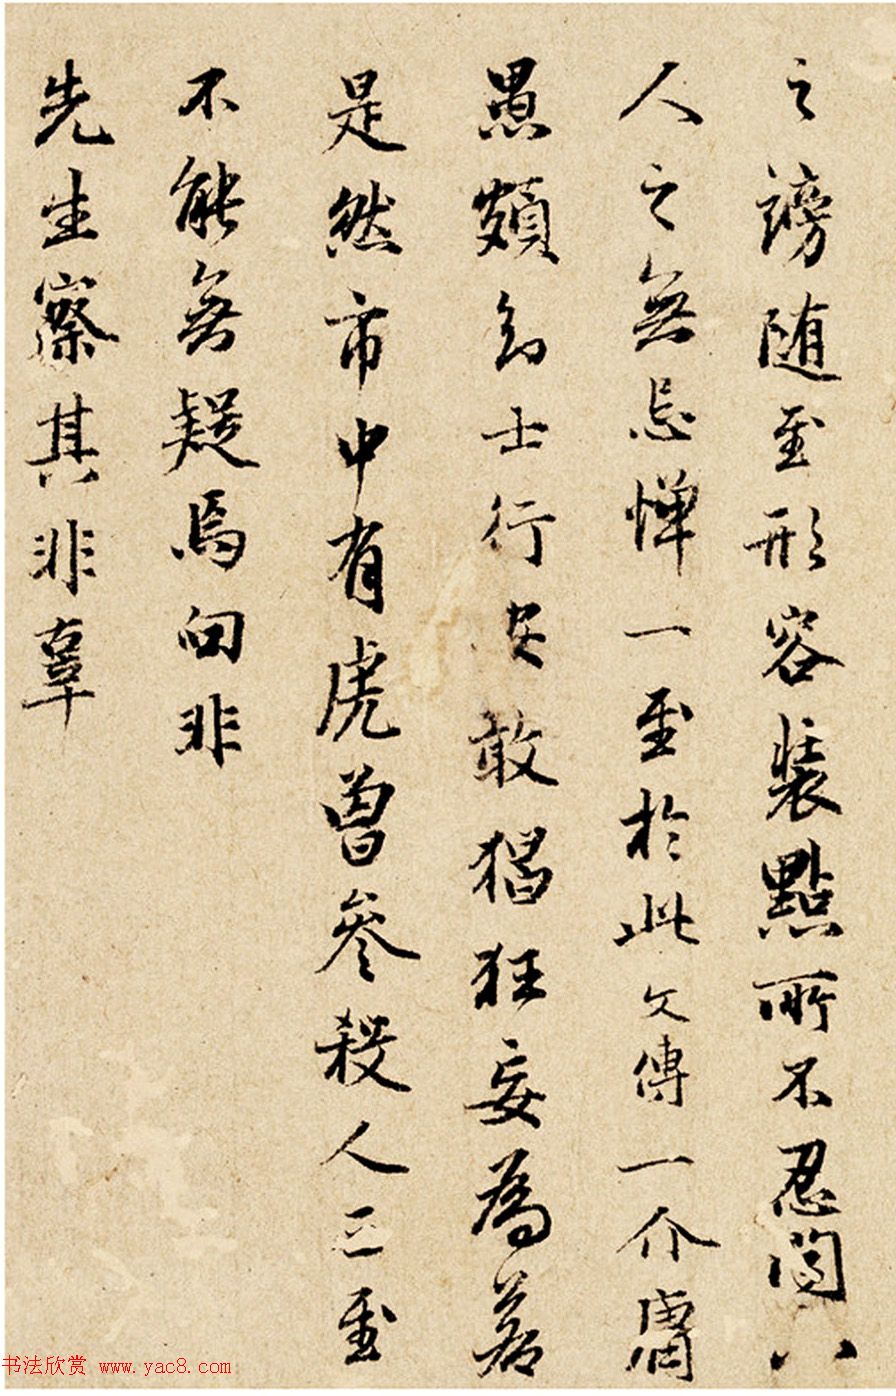 之謗随至形容裝點所不忍闻小
人之無忌憚一至於此文傳一介庸
愚頗知士行安敢猖狂妄為若
是然市中有虎曾參殺人三至
不能無疑焉向非
先生察其非辜
书法欣赏 www.yac8.com